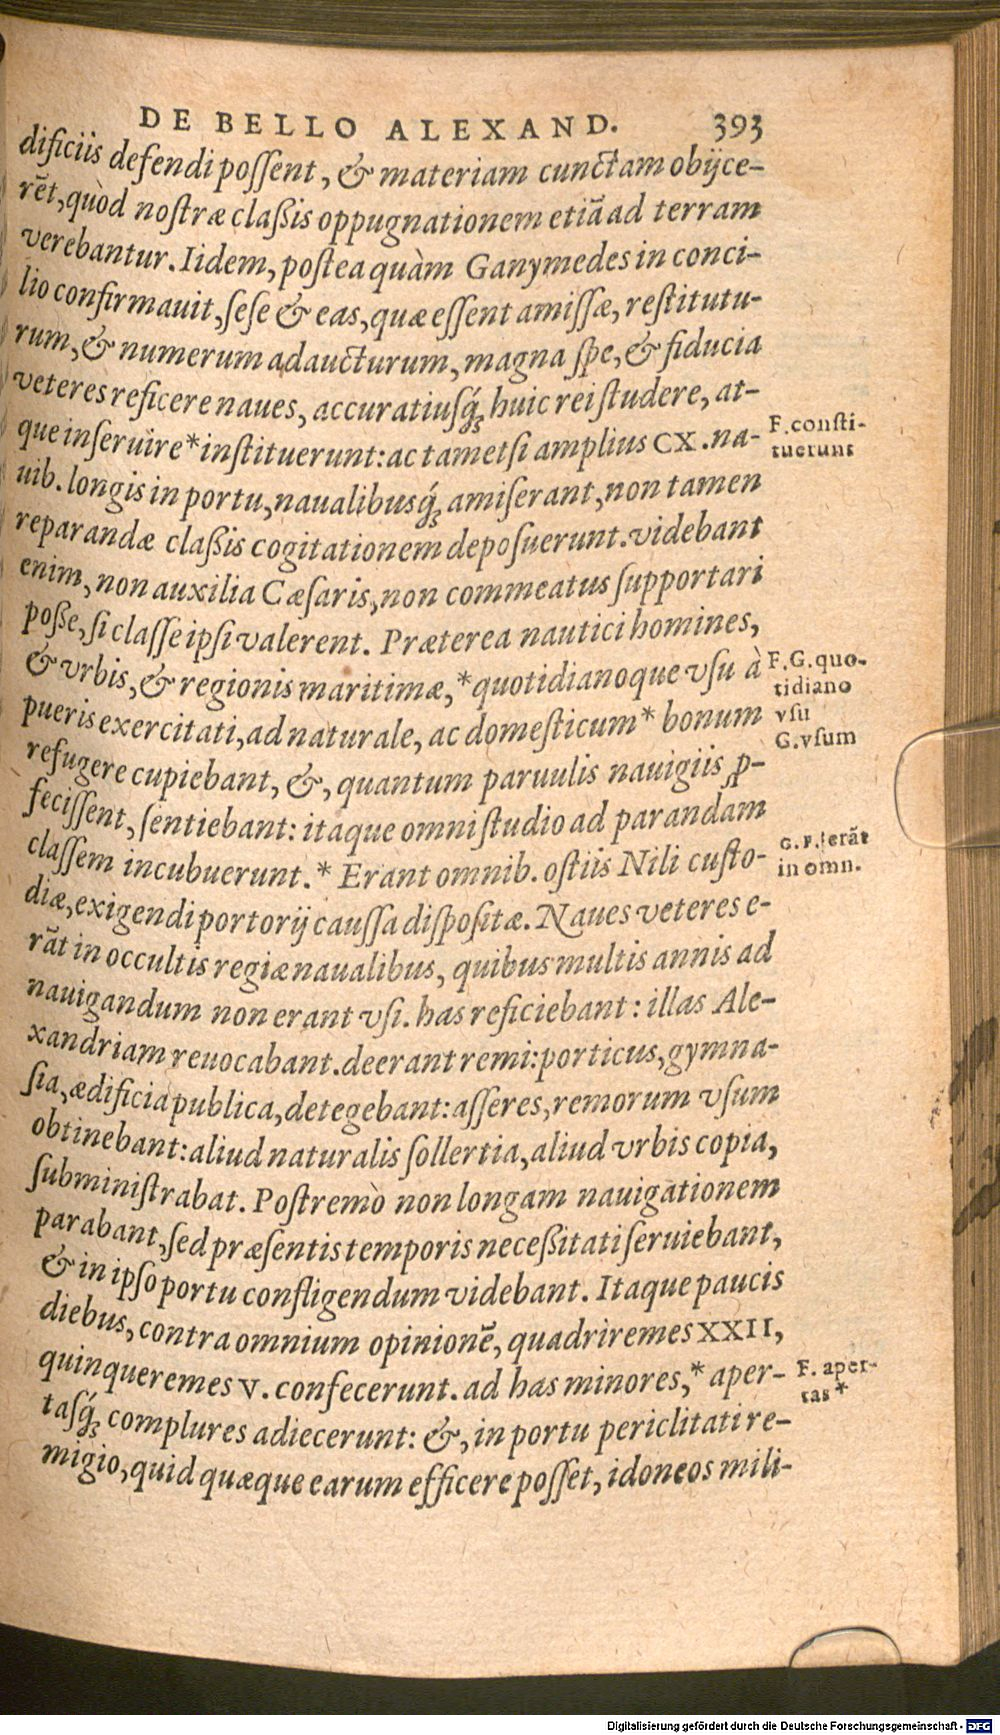 DE BELLO ALEXAND. 393
dificiis defendi poſſent, & materiam cunctam obijce-
rēt, quòd noſtræ claßis oppugnationem etiā ad terram
verebantur. Iidem, poſtea quàm Ganymedes in conci-
lio confirmauit, ſeſe & eas, quæ eſſent amiſſæ, reſtitutu-
rum, & numerum adaucturum, magna ſpe, & fiducia
veteres reficere naues, accuratiusq́; huic rei ſtudere, at-
que inſeruire* inſtituerunt: ac tametſi amplius CX. na-
F. conſti-
tuerunt
uib. longis in portu, naualibusq́; amiſerant, non tamen
reparandæ claßis cogitationem depoſuerunt. videbant
enim, non auxilia Cæſaris, non commeatus ſupportari
poße, ſi claſſe ipſi valerent. Præterea nautici homines,
& vrbis, & regionis maritimæ, * quotidianoque vſu à
F.G. quo-
tidiano
vſu
pueris exercitati, ad naturale, ac domeſticum* bonum
G. vſum
refugere cupiebant, &, quantum paruulis nauigiis ꝓ-
feciſſent, ſentiebant: itaque omni ſtudio ad parandam
claſſem incubuerunt. * Erant omnib. oſtiis Nili cuſto-
G.F. erāt
in omn.
diæ, exigendi portorij cauſſa diſpoſitæ. Naues veteres e-
rāt in occultis regiæ naualibus, quibus multis annis ad
nauigandum non erant vſi. has reficiebant: illas Ale-
xandriam reuocabant. deerant remi: porticus, gymna-
ſia, ædificia publica, detegebant: aſſeres, remorum vſum
obtinebant: aliud naturalis ſollertia, aliud vrbis copia,
ſubminiſtrabat. Poſtremò non longam nauigationem
parabant, ſed præſentis temporis neceßitati ſeruiebant,
& in ipſo portu confligendum videbant. Itaque paucis
diebus, contra omnium opinionē, quadriremes XXII,
quinqueremes V. confecerunt. ad has minores, * aper-
F. aper-
tas *
tasq́; complures adiecerunt: &, in portu periclitati re-
migio, quid quæque earum efficere poſſet, idoneos mili-
Digitalisierung gefördert durch die Deutsche Forschungsgemeinschaft - DFG